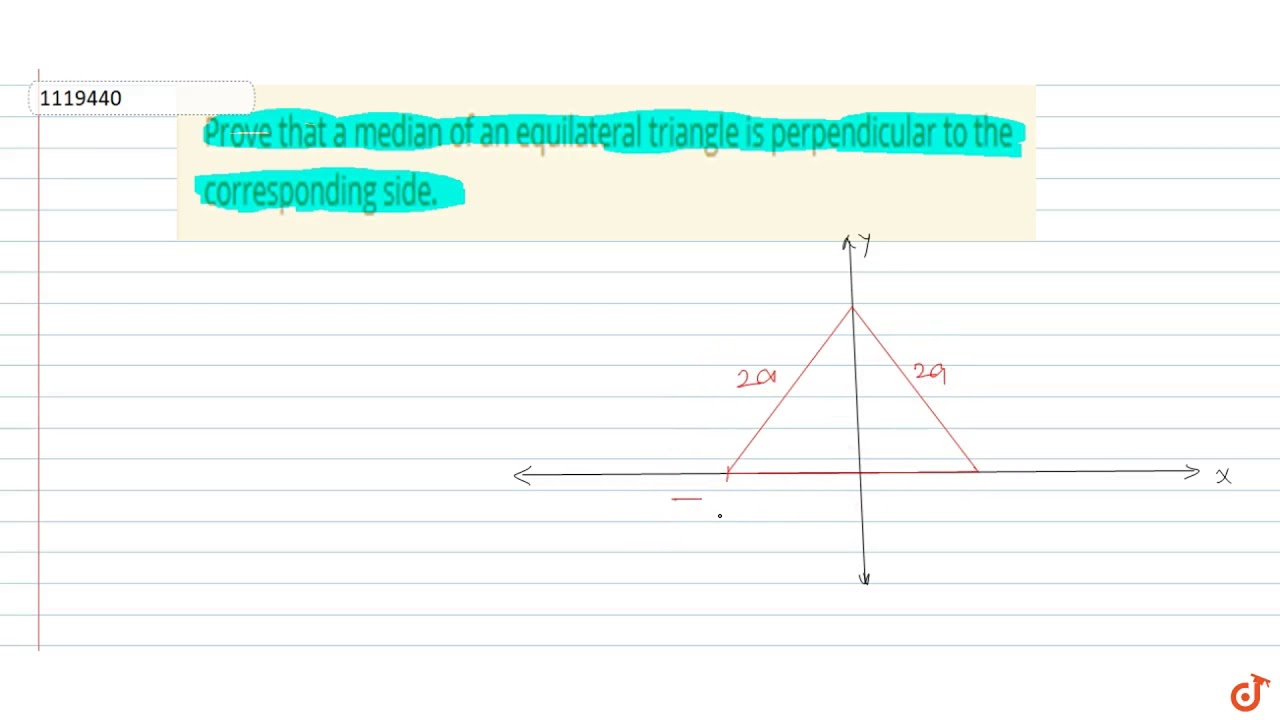 1119440
Prove that a median of an equilateral triangle is perpendicular to the
corresponding side.
y
2a
2a
x